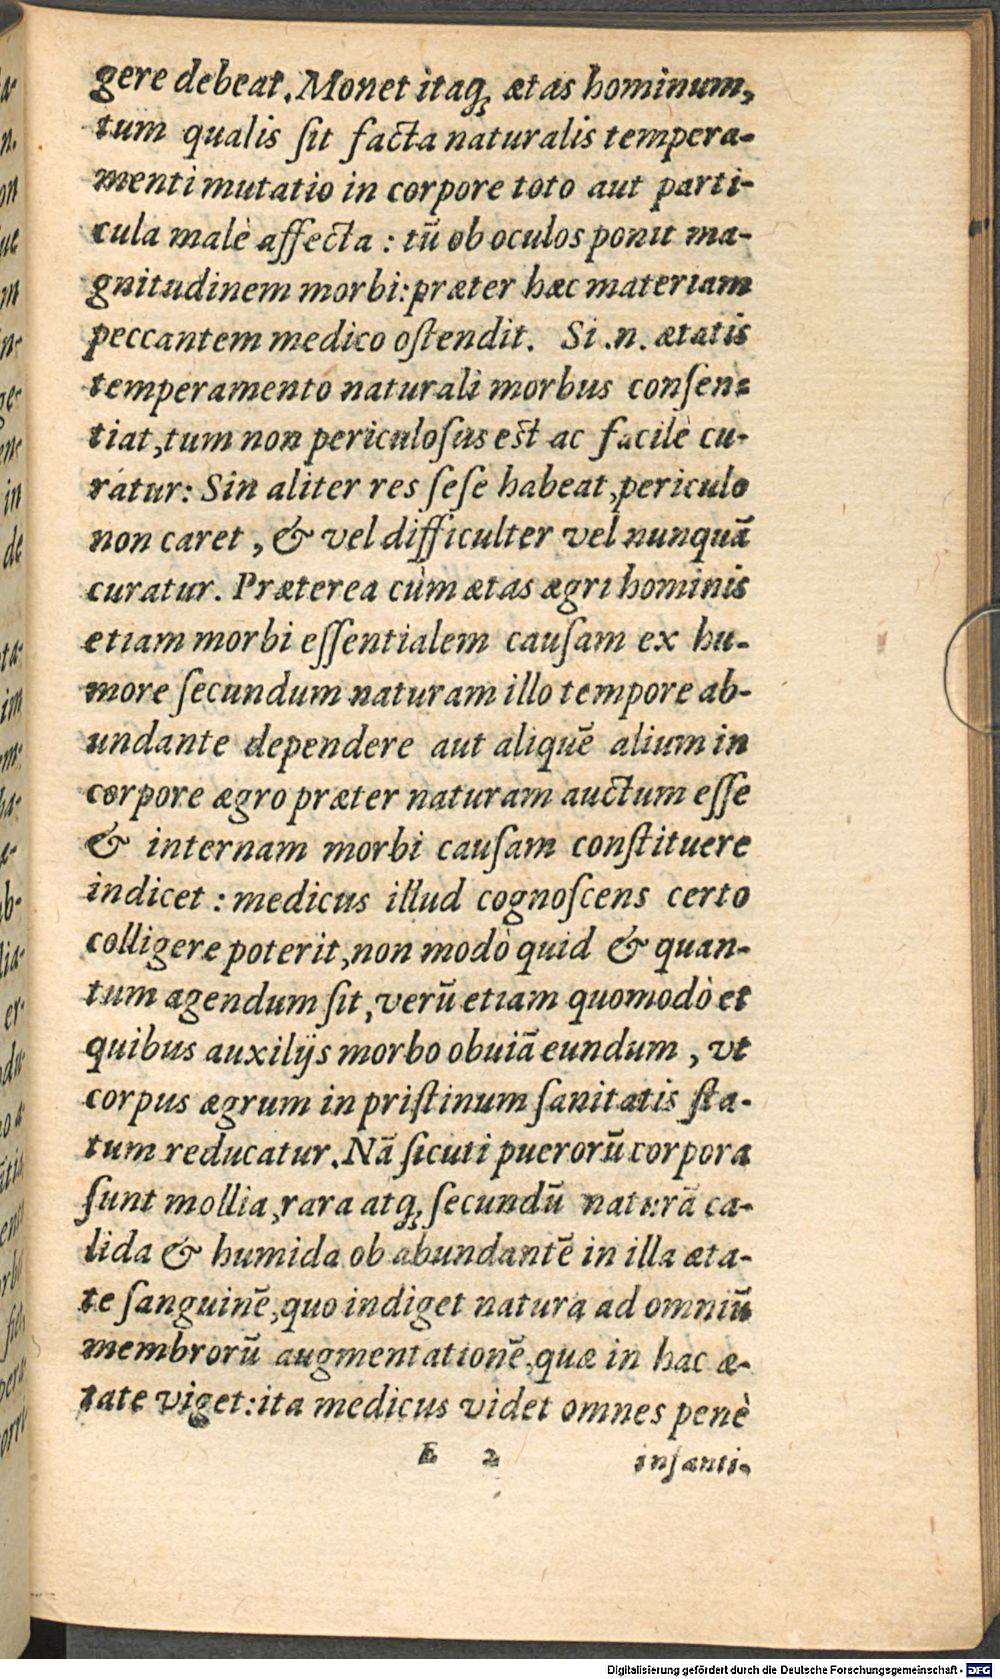 gere debeat. Monet itaq; ætas hominum,
tum qualis ſit facta naturalis tempera-
menti mutatio in corpore toto aut parti-
cula malè affecta : tū ob oculos ponit ma-
gnitudinem morbi: præter hæc materiam
peccantem medico oſtendit. Si .n. ætatis
temperamento naturali morbus conſen-
tiat, tum non periculoſus est ac facilè cu-
ratur: Sin aliter res ſeſe habeat, periculo
non caret , & vel difficulter vel nunquā
curatur. Præterea cùm ætas ægri hominis
etiam morbi eſſentialem cauſam ex hu-
more ſecundum naturam illo tempore ab-
undante dependere aut aliquē alium in
corpore ægro præter naturam auctum eſſe
& internam morbi cauſam conſtituere
indicet : medicus illud cognoſcens certo
colligere poterit, non modò quid & quan-
tum agendum ſit, verū etiam quomodò et
quibus auxilijs morbo obuiā eundum , vt
corpus ægrum in priſtinum ſanitatis ſta-
tum reducatur. Nā ſicuti puerorū corpora
ſunt mollia, rara atq; ſecundū naturā ca-
lida & humida ob abundantē in illa æta-
te ſanguinē, quo indiget natura ad omniū
membrorū augmentationē, quæ in hac æ-
tate viget: ita medicus videt omnes penè
E 2 infanti-
Digitalisierung gefördert durch die Deutsche Forschungsgemeinschaft - DFG